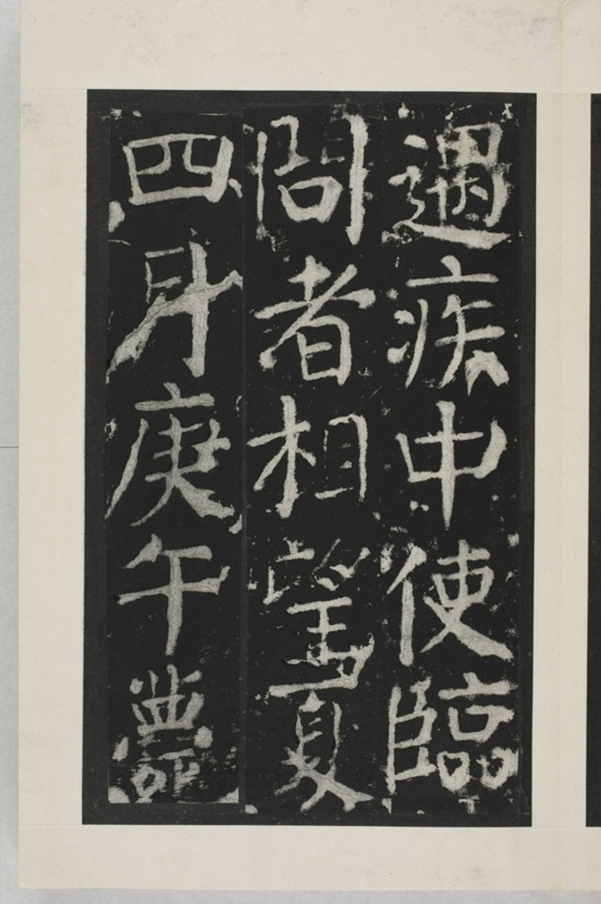 遇疾中使臨
問者相望夏
四月庚午薨